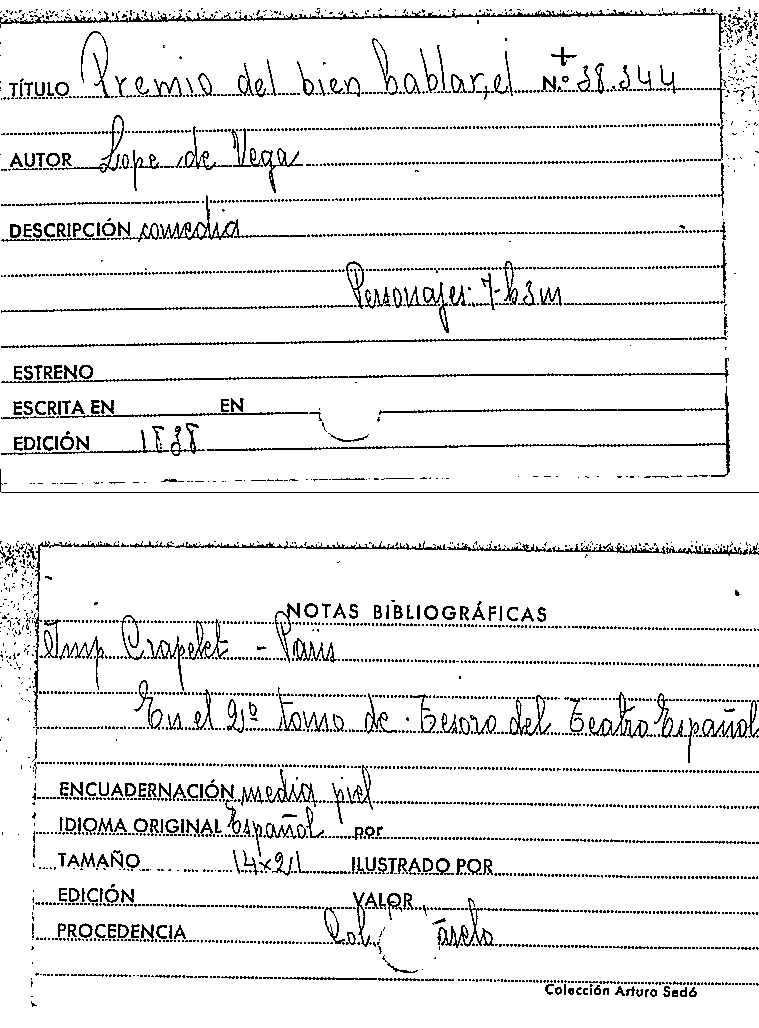 TÍTULO Premio del bien hablar, el N.º 38.344
+
AUTOR Lope de Vega
DESCRIPCIÓN comedia
Personajes: 7-h 3m
ESTRENO
ESCRITA EN EN
EDICIÓN 1838
NOTAS BIBLIOGRÁFICAS
Imp Crapelet - Paris
En el 2º tomo de Tesoro del Teatro Español
ENCUADERNACIÓN media piel
IDIOMA ORIGINAL Español por
TAMAÑO 14x21 ILUSTRADO POR
EDICIÓN VALOR
PROCEDENCIA
Colección Arturo Sedó